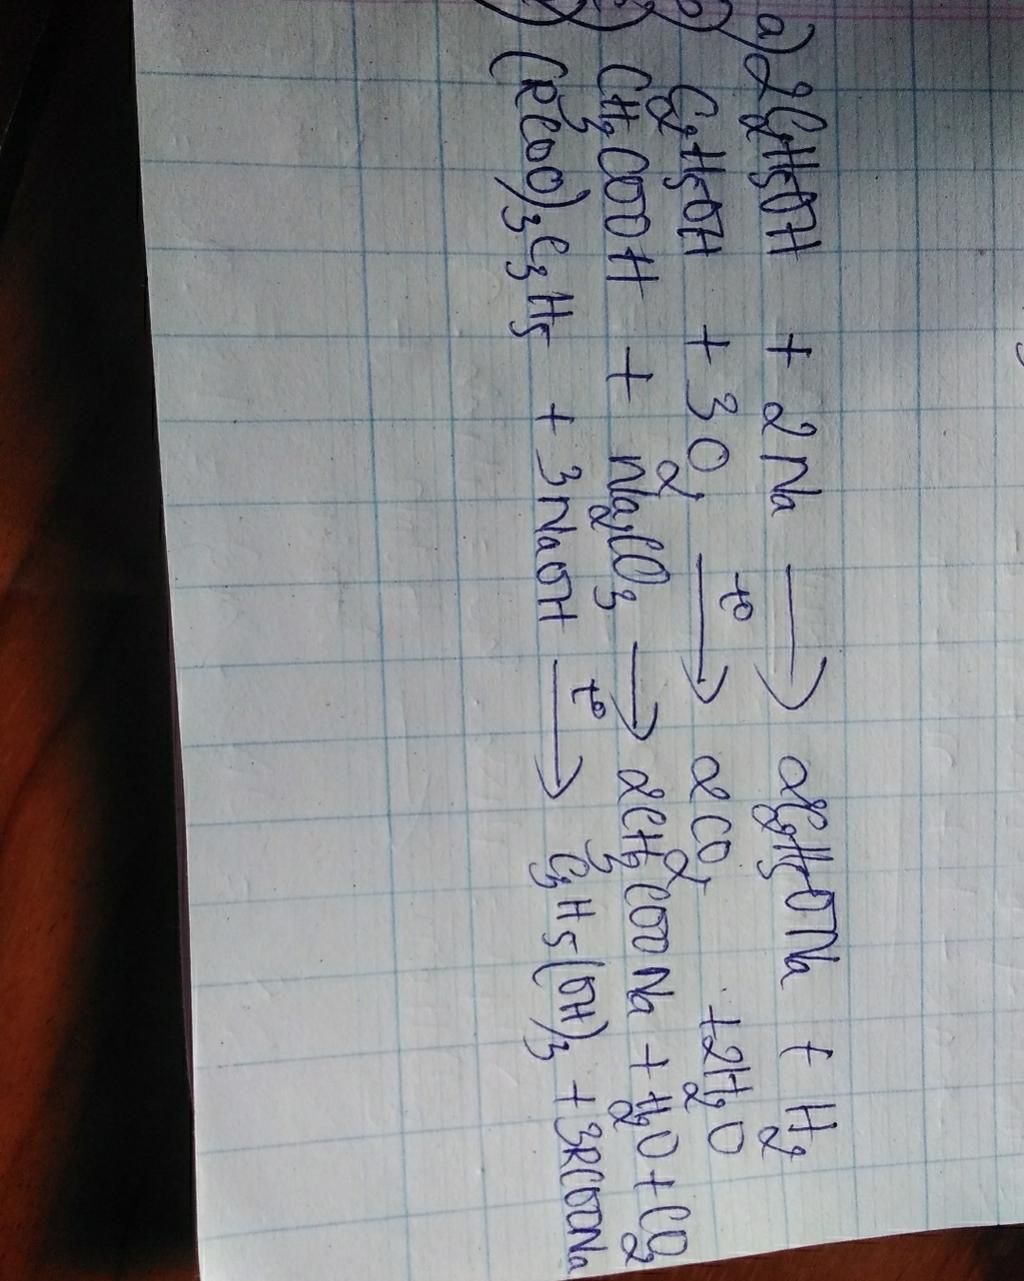 a) 2C₂H₅OH + 2Na → 2C₂H₅ONa + H₂
b) C₂H₅OH + 3O₂ →(t°) 2CO₂ + 2H₂O
c) CH₃COOH + Na₂CO₃ → 2CH₃COONa + H₂O + CO₂
d) (RCOO)₃C₃H₅ + 3NaOH →(t°) C₃H₅(OH)₃ + 3RCOONa